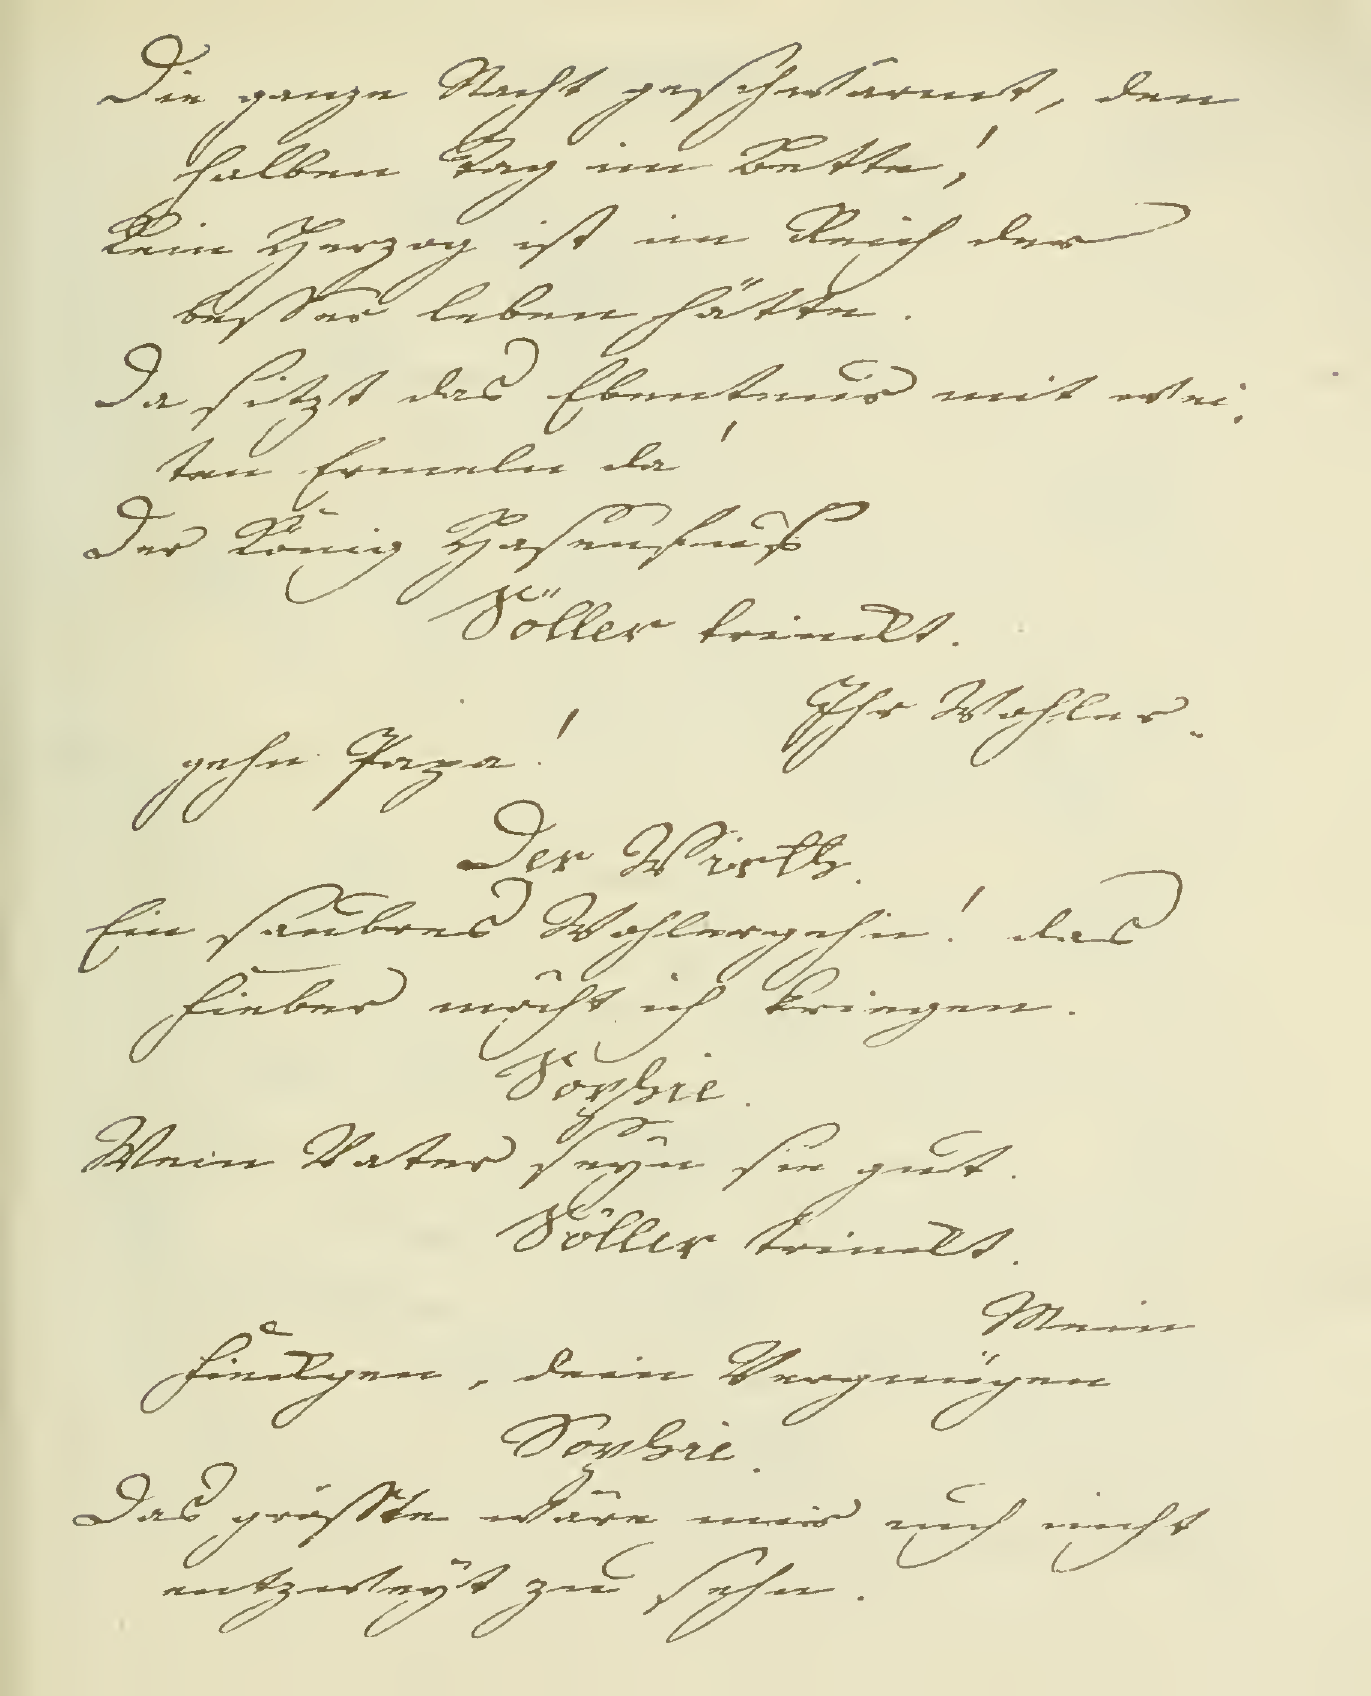 Die ganze Nacht geschwärmt, den
halben Tag im Bette!
Kein Herzog ist im Reich der
besser leben hätte.
Da sitzt das Ebenteuer mit wei-
ten Ermeln da!
Der König Hasenfuß
Söller trinckt.
Ihr Wohler-
gehn Papa!
Der Wirth.
Ein saubres Wohlergehn! das
Fieber mögt ich kriegen.
Sophie.
Mein Vater seyn sie gut.
Söller trinckt.
Mein
Fieckgen, dein Vergnügen
Sophie.
Das größte wäre mir euch nicht
entzweyt zu sehn.